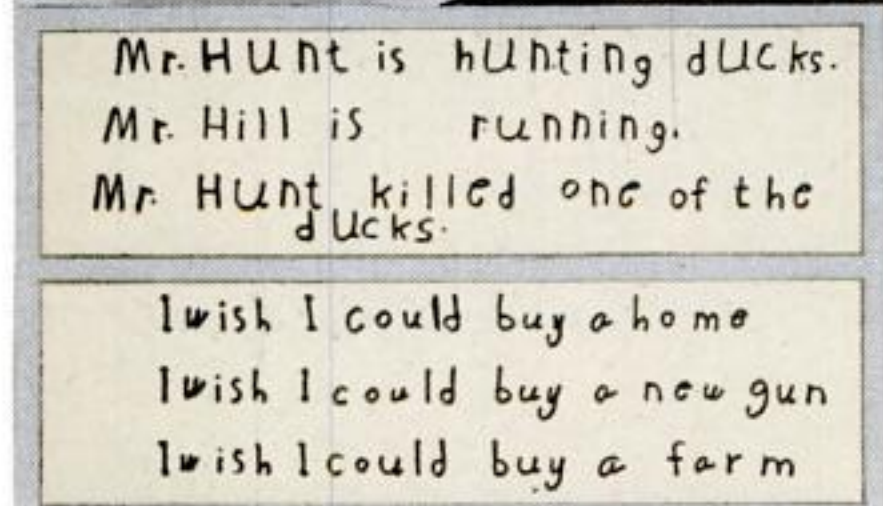 Mr. HUnt is hUnting dUcks.
Mr. Hill is running.
Mr. HUnt killed one of the
dUcks.
I wish I could buy a home
I wish I could buy a new gun
I wish I could buy a farm